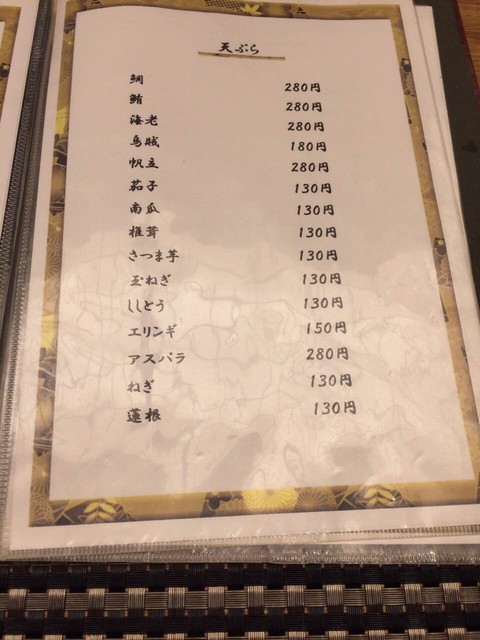 天ぷら
鯛 280円
鮪 280円
海老 280円
烏賊 180円
帆立 280円
茄子 130円
南瓜 130円
椎茸 130円
さつま芋 130円
玉ねぎ 130円
ししとう 130円
エリンギ 150円
アスパラ 280円
ねぎ 130円
蓮根 130円